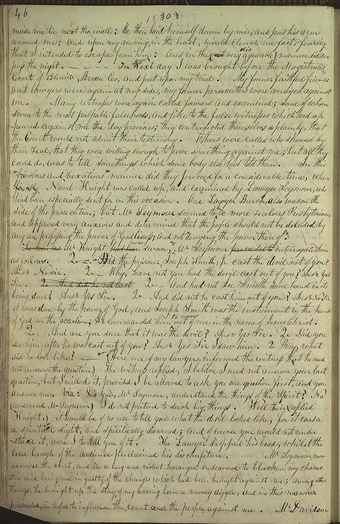 46
made me lie next the wall; He then laid himself down by me, and put his arm
around me; and upon my moving in the least, would clench me fast, fearing
that I intended to escape from him: And in this disagreeable manner did we
pass the night. Next day I was brought before the Magistrates
Court of Colesville, Broom Co, and put upon my trial. My former faithful friends
and Lawyers were again at my side, my former persecutors were arrayed against
me. Many witnesses were again called forward and examined; some of whom
swore to the most palpable falsehoods, and like to the false witnesses which had ap
peared against me the day previous, they contradicted themselves so plainly, that
the Court would not admit their testimony. Others were called who shewed by
their zeal, that they were willing enough to prove something against me; but all they
could do, was to tell some things which some body else had told them. In this
"frivolous and vexatious" manner did they proceed for a considerable time, when
finally Newel Knight was called up, and examined by Lawyer Seymour, who
had been especially sent for on this occasion. One Lawyer Burch, also was on the
side of the prosecution; but Mr Seymour seemed to be a more zealous Presbyterian,
and appeared very anxious and determined that the people should not be deluded by
any one professing the power of Godliness; and not "denying the power thereof".
Mr Knight
as follows. Q— Did the prisoner, Joseph Smith, Jr cast the devil out of you?
Ans. No sir. Q— Why, have not you had the devil cast out of you? Ans. Yes
Sir. Q— And had not Joe Smith some hand in its
being done? Ans. Yes Sir. Q— And did not he cast him out of you? Ans. No Sir
it was done by the power of God, and Joseph Smith was the instrument in the hand
of God on the occasion; He commanded him out of me in the name of Jesus Christ.
Q— And are you sure that it was the devil? Ans. Yes Sir. Q— Did you
see him, after he was cast out of you? Ans. Yes Sir I saw him. Q— Pray, what
did he look like? (Here one of my lawyers, informed the witness that he need
not answer the question) The witness replied, I believe I need not answer your last
question, but I will do it, provided I be allowed to ask you one question first, and you
answer me. Viz: Do you, Mr Seymour, understand the things of the Spirit? No.
(answered Mr Seymour) I do not pretend to such big things. Well then (replied
Knight) it would be of no use to tell you what the devil looked like, for it was
a spiritual sight, and spiritually discerned; and of course you would not unde
rstand it, were I to tell you of it. The Lawyer dropped his head, whilst the
loud laugh of the audience proclaimed his discomfiture. Mr Seymour now
addressed the court, and in a long and violent harangue endeavored to blacken my charac
ter and bring me in guilty of the charges which had been brought against me; among other
things, he brought up the story of my having been a money digger, and in this manner
proceeded, in hopes to influence the court and the people against me. Mr Davidson